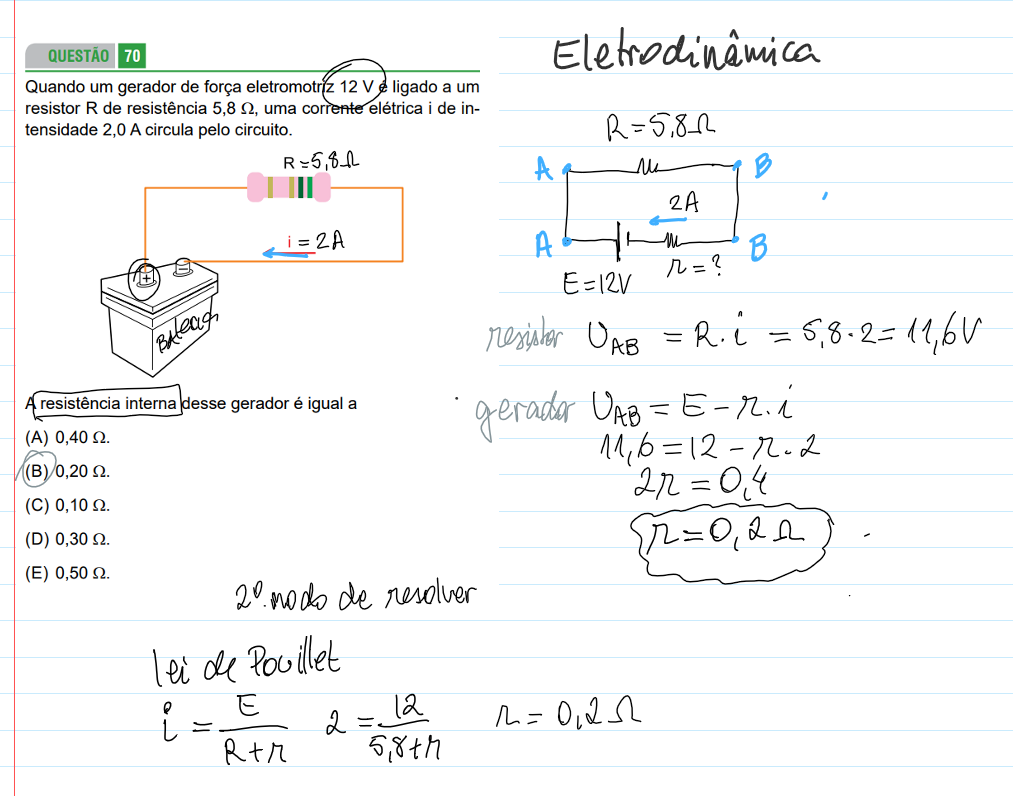 QUESTÃO 70
Quando um gerador de força eletromotriz 12 V é ligado a um
resistor R de resistência 5,8 Ω, uma corrente elétrica i de in-
tensidade 2,0 A circula pelo circuito.
R = 5,8 Ω
i = 2A
+
−
Bateria
A resistência interna desse gerador é igual a
(A) 0,40 Ω.
(B) 0,20 Ω.
(C) 0,10 Ω.
(D) 0,30 Ω.
(E) 0,50 Ω.
Eletrodinâmica
R = 5,8 Ω
A B
2A
A B
E = 12V r = ?
resistor U_AB = R . i = 5,8 . 2 = 11,6 V
gerador U_AB = E − r . i
11,6 = 12 − r . 2
2r = 0,4
r = 0,2 Ω
2º modo de resolver
lei de Pouillet
i = E/(R+r) 2 = 12/(5,8+r) r = 0,2 Ω